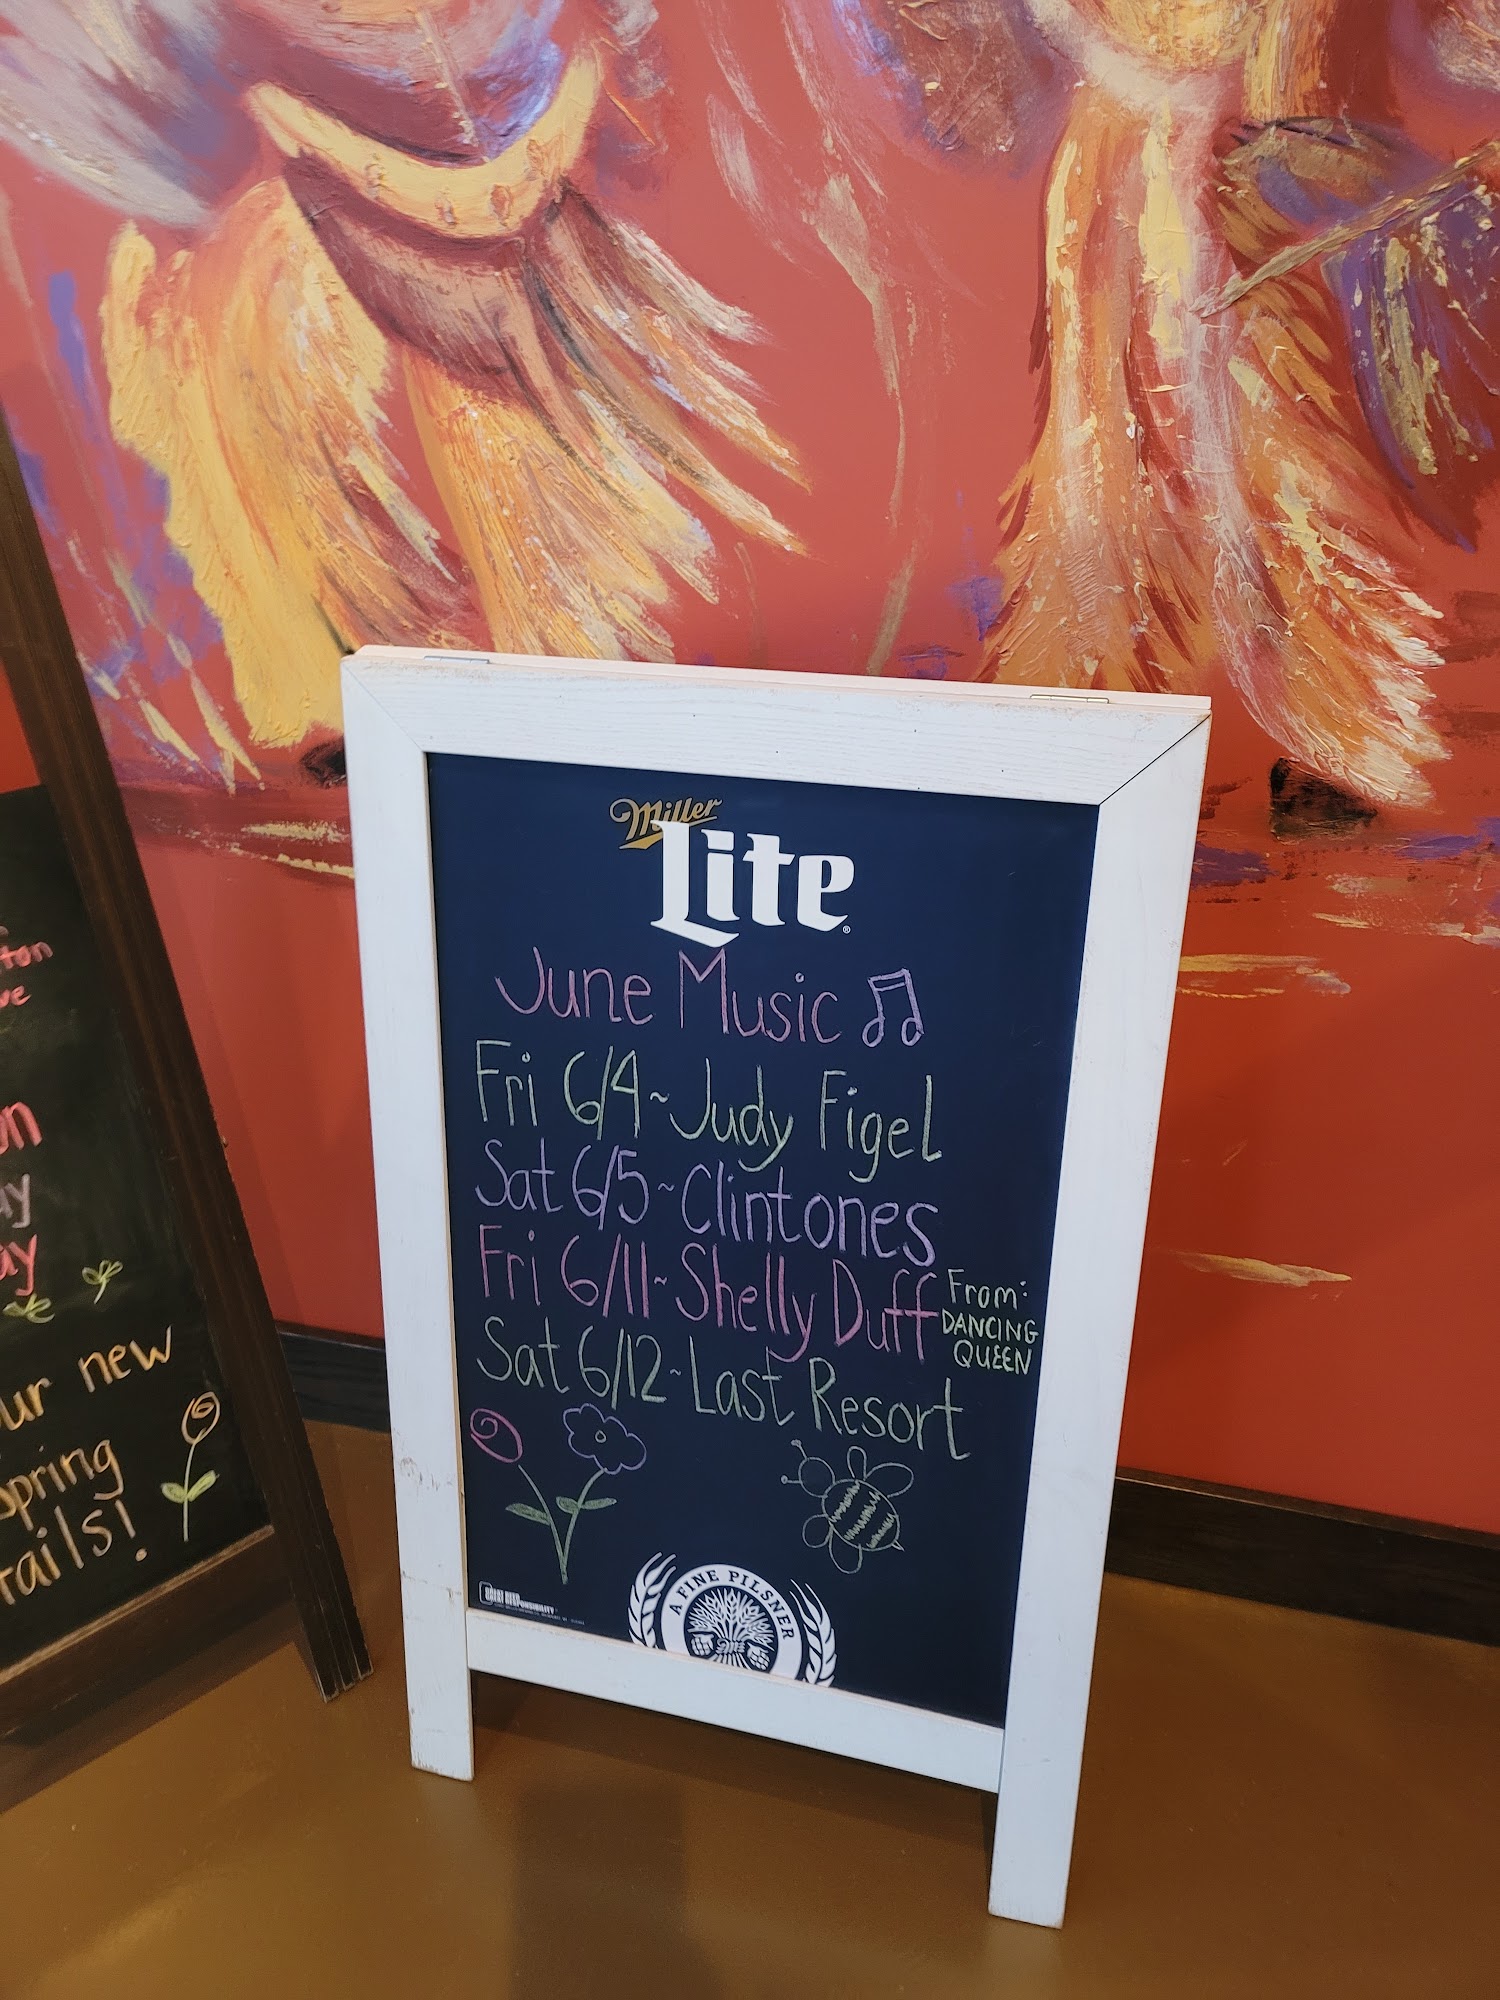 Miller
Lite
June Music
Fri 6/4~Judy Figel
Sat 6/5~Clintones
Fri 6/11~Shelly Duff
From:
DANCING
QUEEN
Sat 6/12~Last Resort
A FINE PILSNER
GREAT BEER
GREAT RESPONSIBILITY
ay
new
spring
tails!